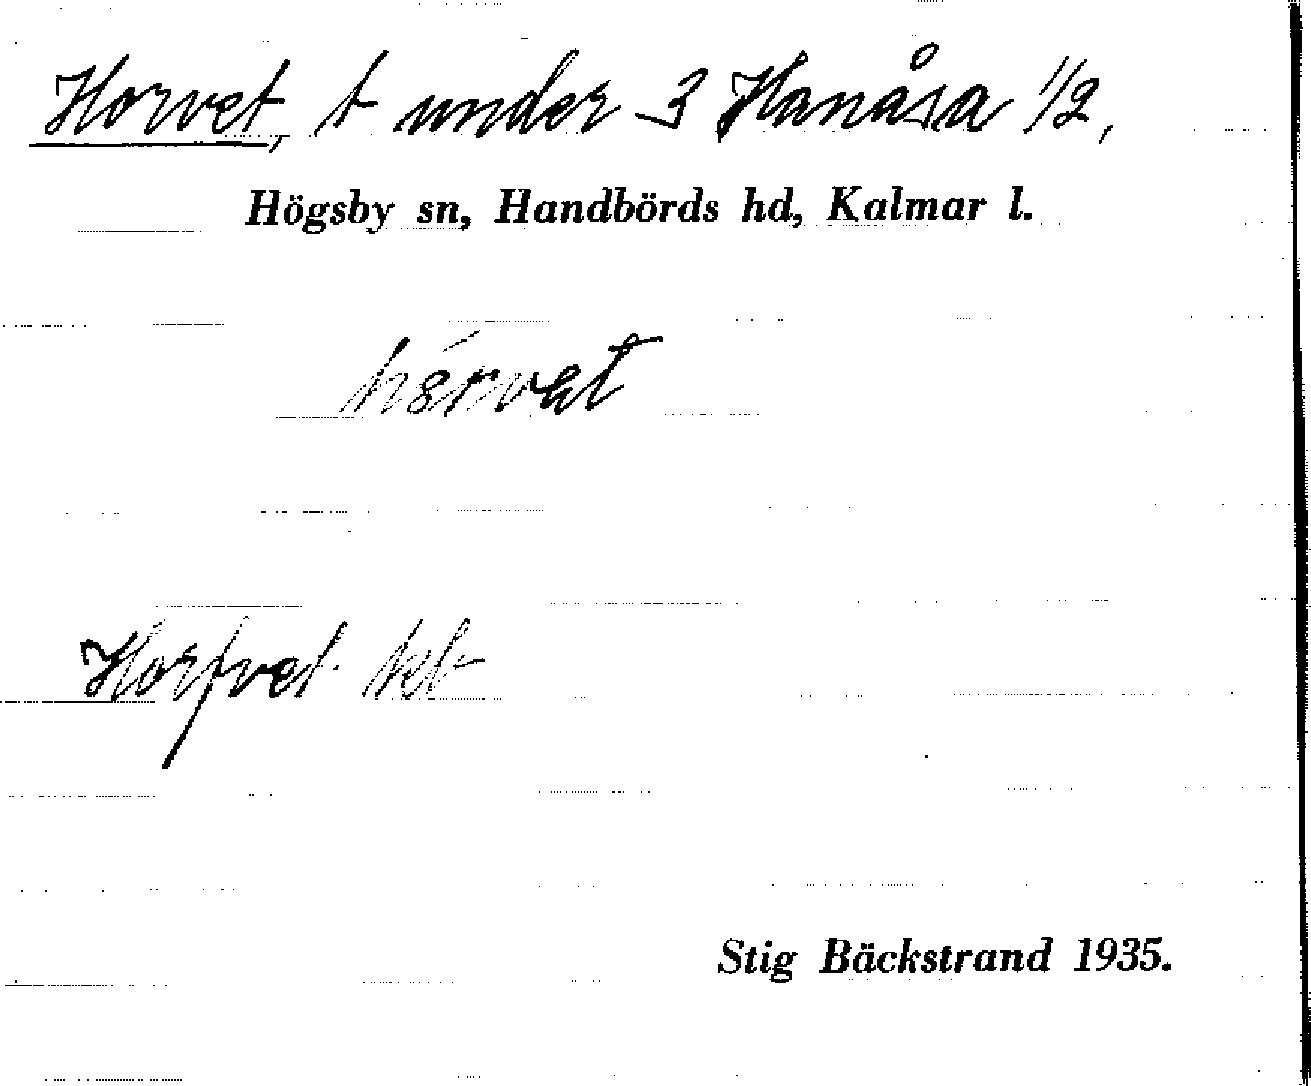 Horvet, t under 3 Hanåsa 1/2,
Högsby sn, Handbörds hd, Kalmar l.
Horfvet kt
Stig Bäckstrand 1935.